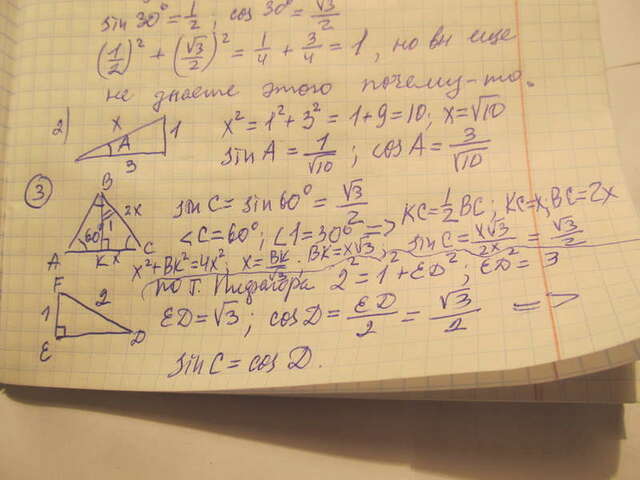 sin 30° = 1/2 ; cos 30° = √3/2
(1/2)² + (√3/2)² = 1/4 + 3/4 = 1, но вы еще
не знаете этого почему-то.
2) x² = 1² + 3² = 1+9 = 10; x = √10
x 1 A 3
sin A = 1/√10 ; cos A = 3/√10
3 sin C = sin 60° = √3/2
B 2x 1 60° A K x C
<C = 60°; <1 = 30° => KC = 1/2 BC; KC = x; BC = 2x
x² + BK² = 4x²; x = BK/√3. BK = x√3; sin C = x√3/2x = √3/2
По т. Пифагора 2² = 1² + ED²; ED² = 3
F 1 2 E D
ED = √3; cos D = ED/2 = √3/2 =>
sin C = cos D.